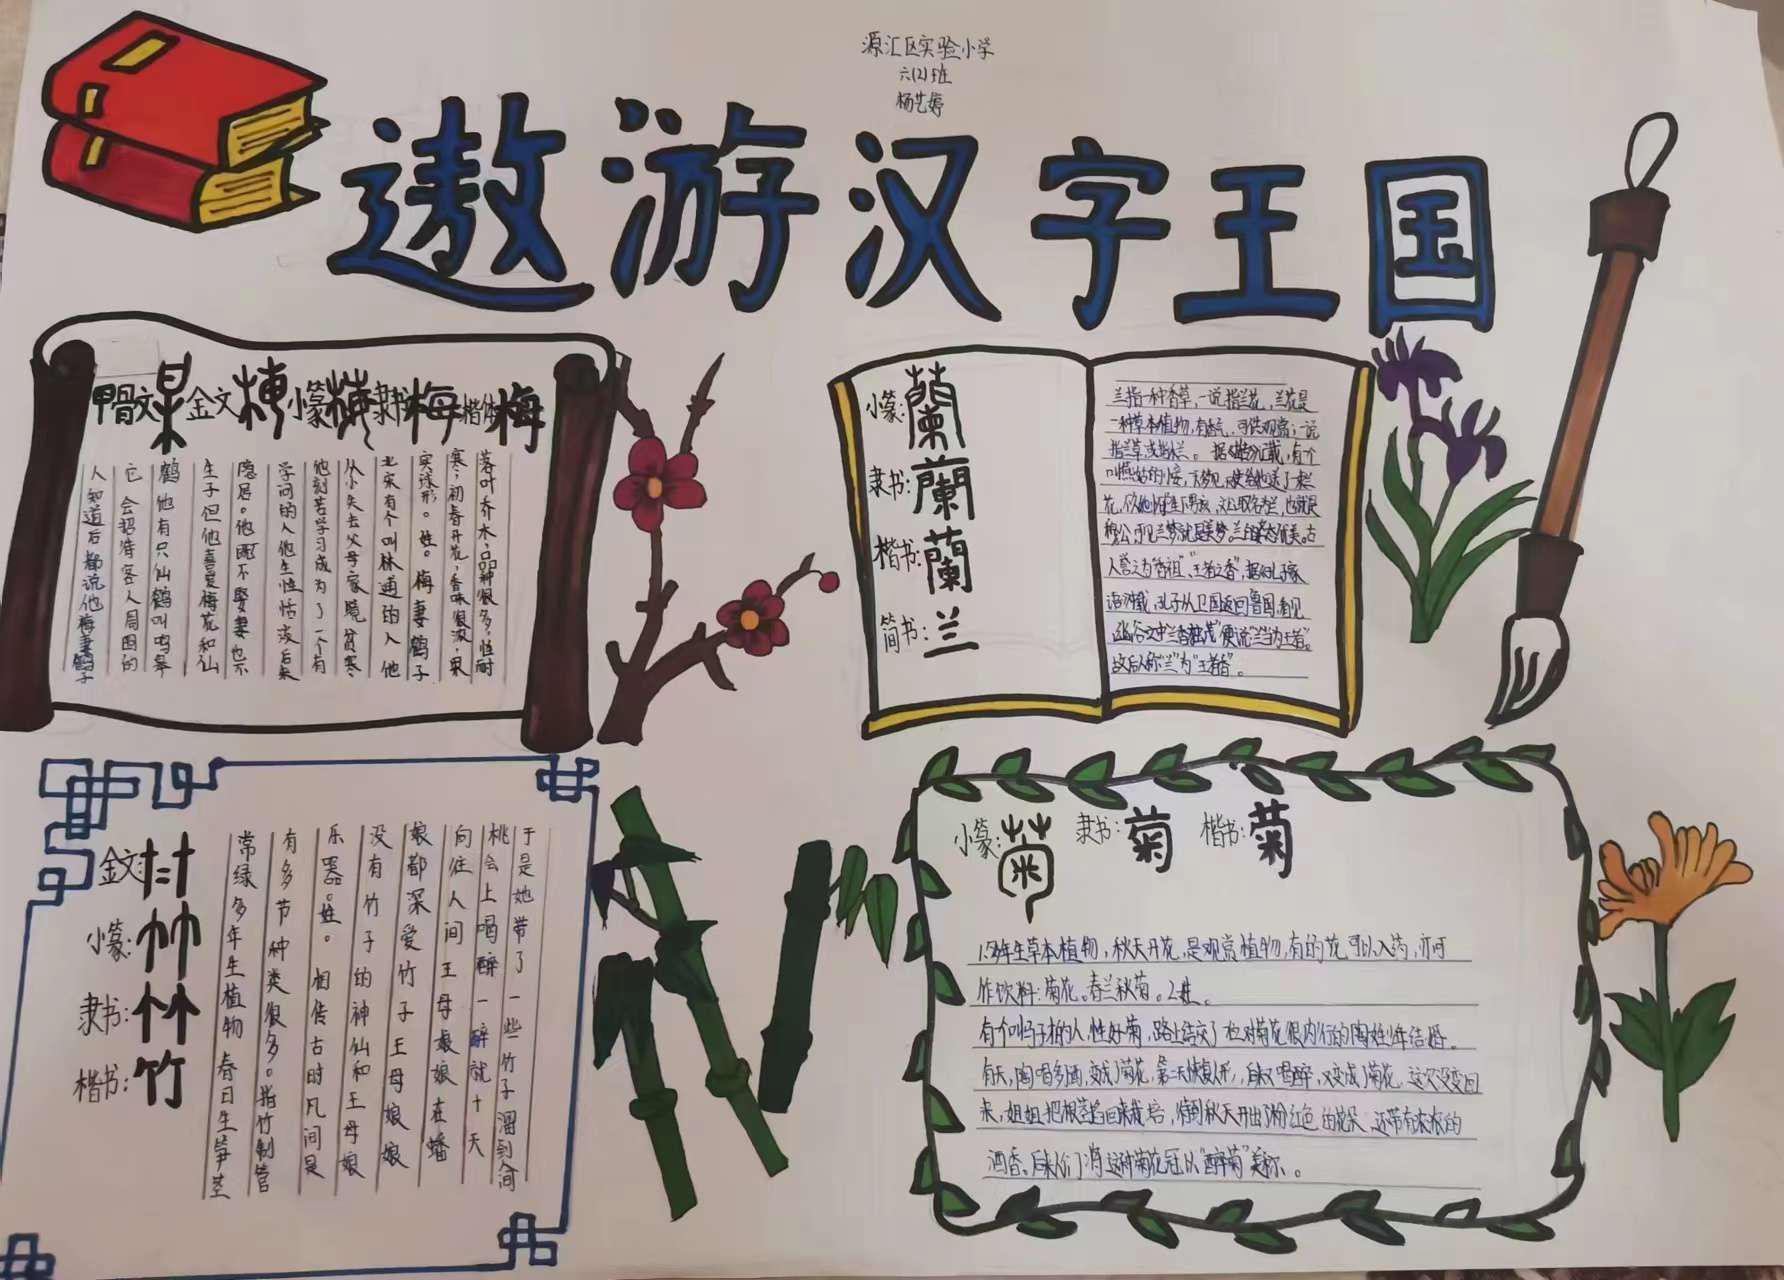 源汇区实验小学
六(2)班
杨艺婷
遨游汉字王国
甲骨文 金文 小篆 隶书 梅 楷体 梅
落叶乔木,品种很多,性耐
寒,初春开花,香味很浓,果
实球形。姓。梅妻鹤子
北宋有个叫林逋的人他
从小失去父母家境贫寒
他刻苦学习成为了一个有
学问的人他生性恬淡后来
隐居。他既不娶妻也不
生子但他喜爱梅花和仙
鹤他有只仙鹤叫鸣皋
它会招待客人周围的
人知道后都说他梅妻鹤子
小篆:蘭
隶书:蘭
楷书:蘭
简书:兰
兰指一种香草,一说指兰花,兰花是
一种草本植物,有香气,可供观赏;一说
指兰草或指木兰。据《》记载,有个
花,
人誉之为"香祖"、"王者之香",据《孔子家
语》载,孔子从卫国返回鲁国,看见
幽谷之中兰香独茂"便说"兰当为王者"。
故后人称"兰"为"王者香"。
金文:
小篆:
隶书:竹
楷书:竹
于是她带了一些竹子溜到人间
桃会上喝醉一醉就十天
向往人间王母娘娘在蟠
娘都深爱竹子王母娘娘
没有竹子的神仙和王母娘
乐器。姓。相传古时凡间是
有多节种类很多。指竹制管
常绿多年生植物春日生笋茎
小篆:菊 隶书:菊 楷书:菊
1.多年生草本植物,秋天开花,是观赏植物,有的花可以入药,亦可
作饮料:菊花。春兰秋菊。2.姓。
有个叫马子才的人,性好菊,路上结交了也对菊花很内行的陶姓少年结婚。
有天,陶喝多酒,变成了菊花,第二天恢复人形,后又喝醉,又变成了菊花,这次没变回
来,姐姐把根茎掐回来栽培,等到秋天开出了粉红色的花朵,还带有浓浓的
酒香。后来人们将这种菊花冠以"醉菊"美称。